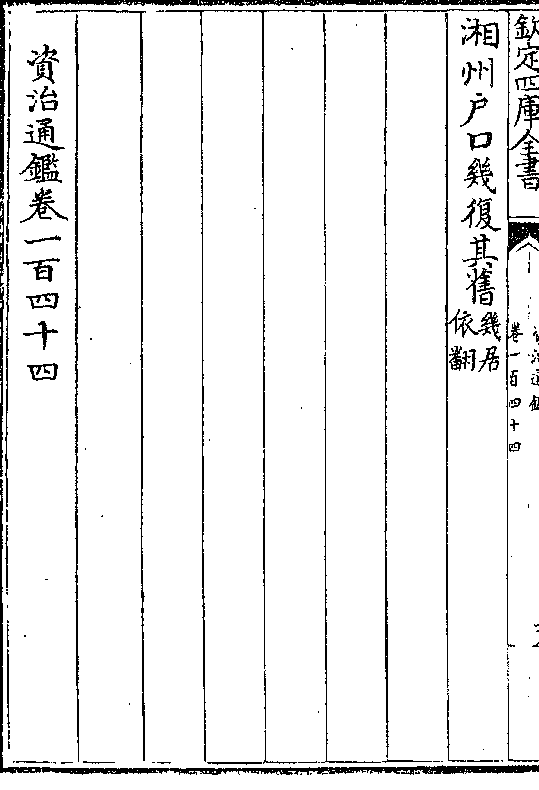 欽定四庫全書
資治通鑑
卷一百四十四
湘州户口幾復其舊幾居依翻
資治通鑑卷一百四十四